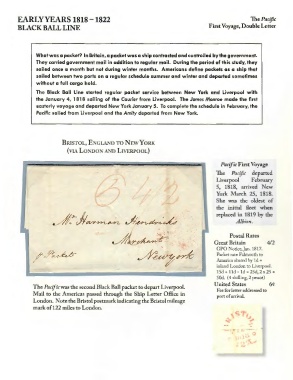 EARLY YEARS 1818 – 1822
BLACK BALL LINE
The Pacific
First Voyage, Double Letter
What was a packet? In Britain, a packet was a ship contracted and controlled by the government.
They carried government mail in addition to regular mail. During the period of this study, they
sailed once a month but not during winter months. Americans define packets as a ship that
sailed between two ports on a regular schedule summer and winter and departed sometimes
without a full cargo hold.
The Black Ball Line started regular packet service between New York and Liverpool with
the January 4, 1818 sailing of the Courier from Liverpool. The James Monroe made the first
easterly voyage and departed New York January 5. To complete the schedule in February, the
Pacific sailed from Liverpool and the Amity departed from New York.
BRISTOL, ENGLAND TO NEW YORK
(VIA LONDON AND LIVERPOOL)
Mr Harman Hendricks
Merchant
New york
Packet
Pacific First Voyage
The Pacific departed
Liverpool February
5, 1818, arrived New
York March 25, 1818.
She was the oldest of
the initial fleet when
replaced in 1819 by the
Albion.
Postal Rates
Great Britain 4/2
United States 6¢
Fee for letter addressed to
port of arrival.
The Pacific was the second Black Ball packet to depart Liverpool.
Mail to the American passed through the Ship Letter Office in
London. Note the Bristol postmark indicating the Bristol mileage
mark of 122 miles to London.
BRISTOL